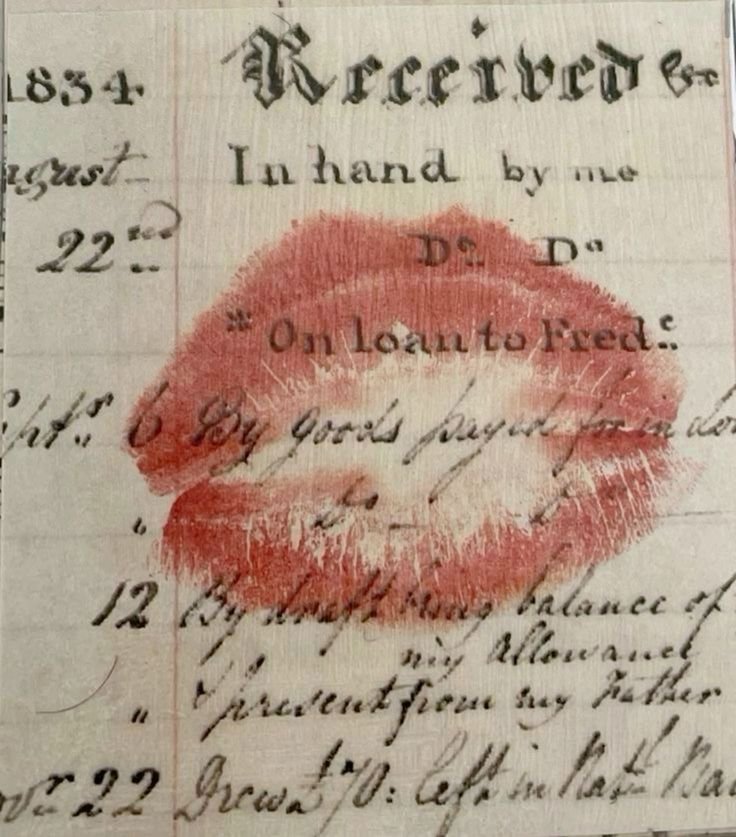 1834 Received &c
August In hand by me
22nd Do Do
" On loan to Fredc
Septr 6 By goods payed for in
" Do Do
12 By draft being balance of
my Allowance
" & present from my Father
22 Drew £70: left in Natl